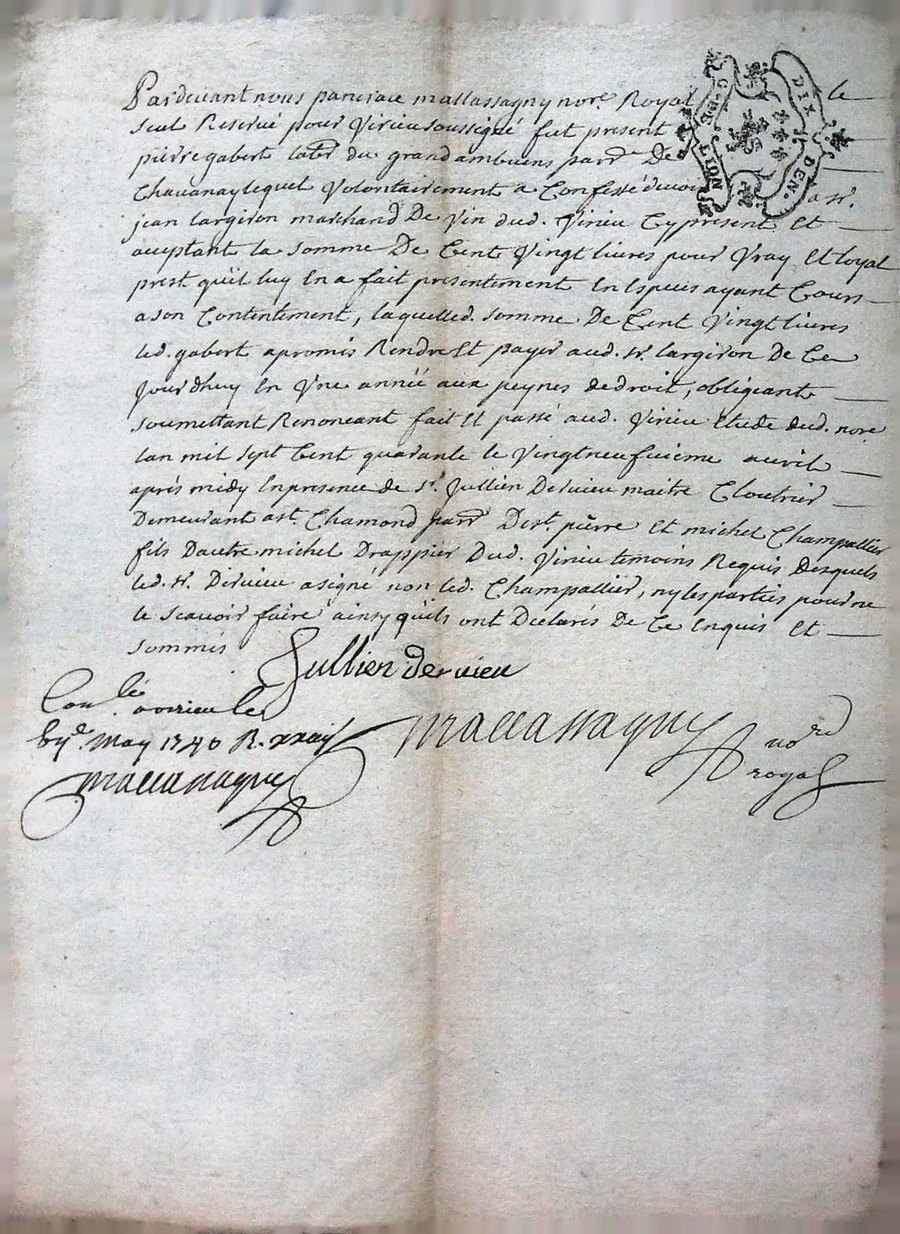 Pardevant nous pancrace mallassagny nore. Royal le
seul Reservé pour Virieu soussigné fut present
pierre gabert labr. du grand ambuens parr.e De
Chavanay lequel Volontairement a Confessé devoir a sr.
jean largiron marchand De Vin dud. Virieu Cy present Et
acceptant la somme De Cent Vingt livres pour Vray Et loyal
prest qu'il luy En a fait presentement En Especes ayant Cours
a son Contentement, laquelle d. somme De Cent Vingt livres
led. gabert a promis Rendre Et payer aud. sr. largiron De Ce
Jourdhuy En Vne année aux peynes de droit, obligeant
soumettant Renonceant fait Et passé aud. Virieu Etude dud. nore.
lan mil sept Cent quarante le Vingt neufuieme avril
après midy En presence de sr. Jullien Dervieu maitre Cloutrier
Demeurant a st. Chamond parr.e De st. pierre Et michel Champallier
fils Dautre michel Drappier Dud. Virieu temoins Requis Desquels
led. sr. Dervieu a signé non led. Champallier, ny les parties pour ne
le scavoir faire ainsy quils ont Declarés De Ce Enquis Et
sommés
Jullien dervieu
Con.lé a virieu le
may 1740 R.
mallassagny
mallassagny
no.re
royal
G. DE LION
DIX DEN.